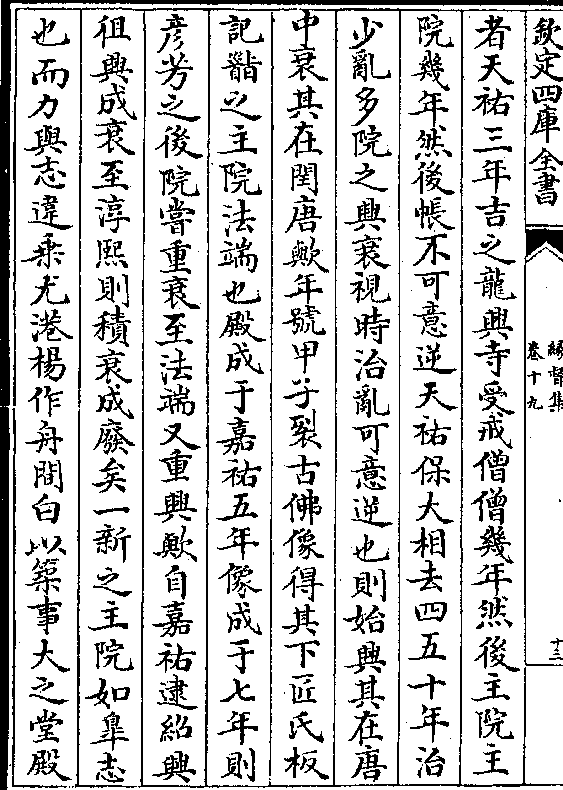 欽定四庫全書
緣督集
卷十九
十三
者天祐三年吉之龍興寺受戒僧僧幾年然後主院主
院幾年然後帳不可意逆天祐保大相去四五十年治
少亂多院之興衰視時治亂可意逆也則始興其在唐
中衰其在閏唐歟年號甲子裂古佛像得其下匠氏板
記朁之主院法端也殿成于嘉祐五年像成于七年則
彥芳之後院嘗重衰至法端又重興歟自嘉祐逮紹興
徂興成衰至淳熙則積衰成廢矣一新之主院如臯志
也而力與志違乘尤港楊作舟間白以築事大之堂殿